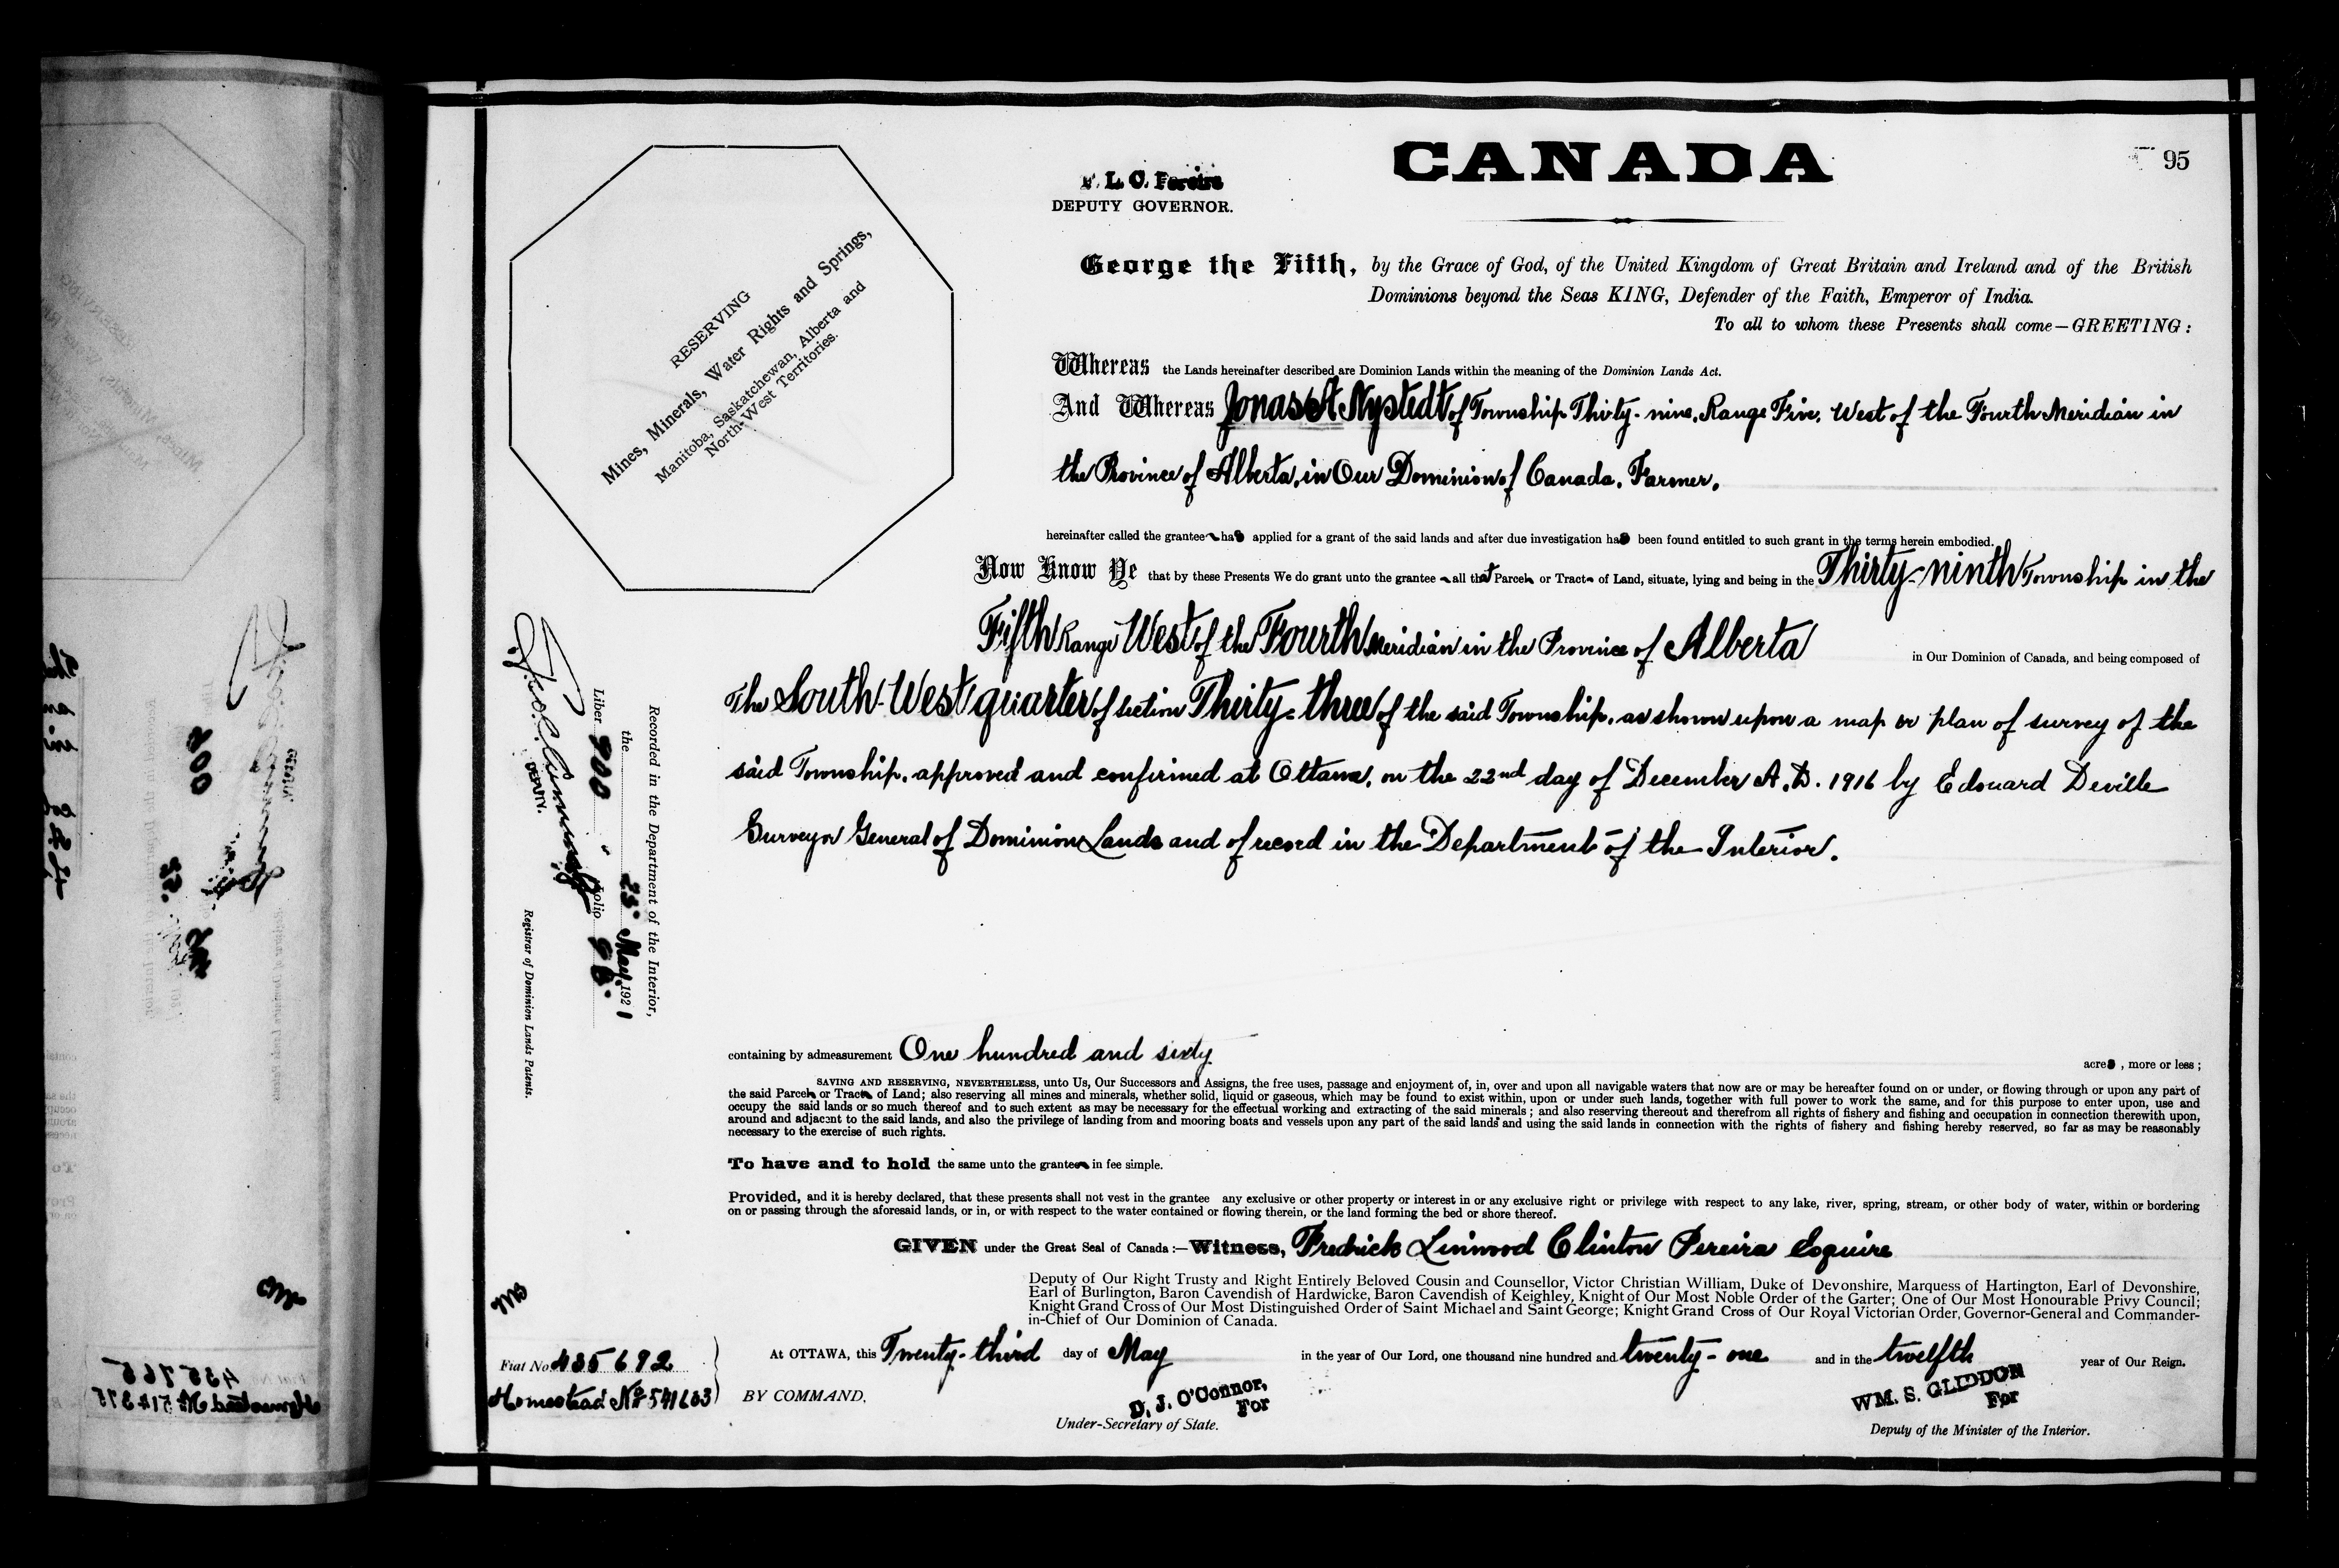 CANADA
95
F. L. C. Pereira
DEPUTY GOVERNOR.
RESERVING
Mines, Minerals, Water Rights and Springs,
Manitoba, Saskatchewan, Alberta and
North-West Territories.
George the Fifth, by the Grace of God, of the United Kingdom of Great Britain and Ireland and of the British
Dominions beyond the Seas KING, Defender of the Faith, Emperor of India.
To all to whom these Presents shall come—GREETING:
Whereas the Lands hereinafter described are Dominion Lands within the meaning of the Dominion Lands Act.
And Whereas Jonas A Nystedt of Township Thirty-nine, Range Five, West of the Fourth Meridian in
the Province of Alberta, in Our Dominion of Canada, Farmer,
hereinafter called the grantee has applied for a grant of the said lands and after due investigation has been found entitled to such grant in the terms herein embodied.
Now Know Ye that by these Presents We do grant unto the grantee all that Parcel or Tract of Land, situate, lying and being in the Thirty-ninth Township in the
Fifth Range West of the Fourth Meridian in the Province of Alberta in Our Dominion of Canada, and being composed of
The South-West quarter of section Thirty-three of the said Township, as shown upon a map or plan of survey of the
said Township, approved and confirmed at Ottawa, on the 22nd day of December A.D. 1916 by Edouard Deville
Surveyor General of Dominion Lands and of record in the Department of the Interior.
containing by admeasurement One hundred and sixty acres, more or less;
SAVING AND RESERVING, NEVERTHELESS, unto Us, Our Successors and Assigns, the free uses, passage and enjoyment of, in, over and upon all navigable waters that now are or may be hereafter found on or under, or flowing through or upon any part of
the said Parcel or Tract of Land; also reserving all mines and minerals, whether solid, liquid or gaseous, which may be found to exist within, upon or under such lands, together with full power to work the same, and for this purpose to enter upon, use and
occupy the said lands or so much thereof and to such extent as may be necessary for the effectual working and extracting of the said minerals; and also reserving thereout and therefrom all rights of fishery and fishing and occupation in connection therewith upon,
around and adjacent to the said lands, and also the privilege of landing from and mooring boats and vessels upon any part of the said lands and using the said lands in connection with the rights of fishery and fishing hereby reserved, so far as may be reasonably
necessary to the exercise of such rights.
To have and to hold the same unto the grantee in fee simple.
Provided, and it is hereby declared, that these presents shall not vest in the grantee any exclusive or other property or interest in or any exclusive right or privilege with respect to any lake, river, spring, stream, or other body of water, within or bordering
on or passing through the aforesaid lands, or in, or with respect to the water contained or flowing therein, or the land forming the bed or shore thereof.
GIVEN under the Great Seal of Canada:—Witness, Fredrick Linwood Clinton Pereira Esquire
Deputy of Our Right Trusty and Right Entirely Beloved Cousin and Counsellor, Victor Christian William, Duke of Devonshire, Marquess of Hartington, Earl of Devonshire,
Earl of Burlington, Baron Cavendish of Hardwicke, Baron Cavendish of Keighley, Knight of Our Most Noble Order of the Garter; One of Our Most Honourable Privy Council;
Knight Grand Cross of Our Most Distinguished Order of Saint Michael and Saint George; Knight Grand Cross of Our Royal Victorian Order, Governor-General and Commander-
in-Chief of Our Dominion of Canada.
At OTTAWA, this Twenty-third day of May in the year of Our Lord, one thousand nine hundred and twenty-one and in the twelfth year of Our Reign.
BY COMMAND,
D. J. O'Connor,
For
Under-Secretary of State.
WM. S. GLIDDON
For
Deputy of the Minister of the Interior.
Fiat No 435692
Homestead No 541603
Recorded in the Department of the Interior,
the 25 May, 1921
Liber 900 Folio 95.
DEPUTY.
Registrar of Dominion Lands Patents.